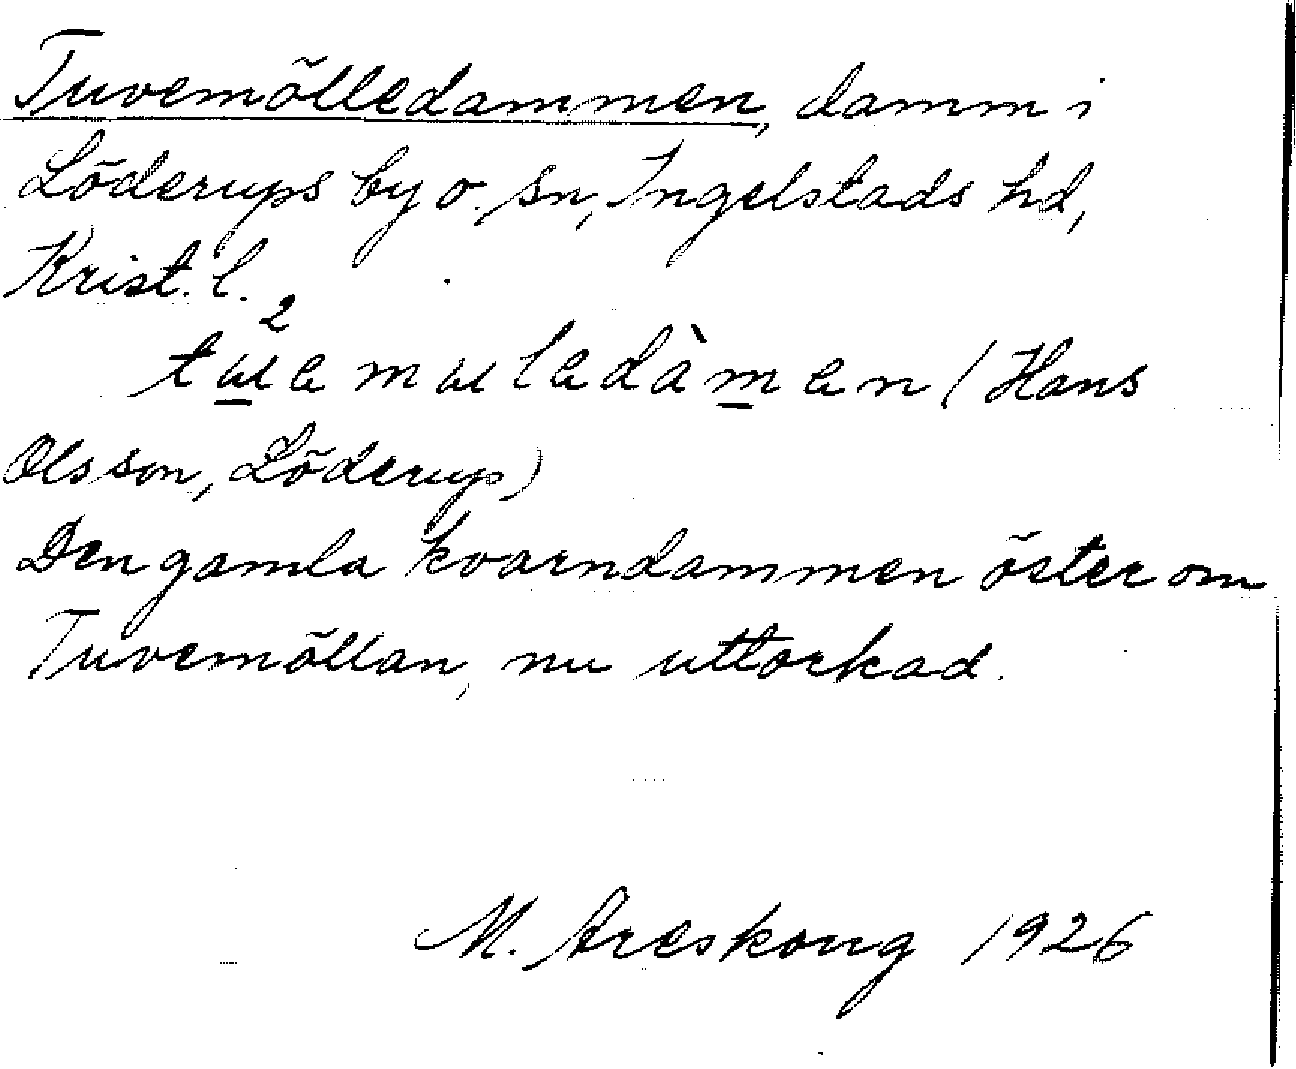 Tuvemölledammen, damm i
Löderups by o. sn, Ingelstads hd,
Krist. l.
(Hans
Olsson, Löderup)
Den gamla kvarndammen öster om
Tuvemöllan, nu uttorkad.
M. Areskoug 1926